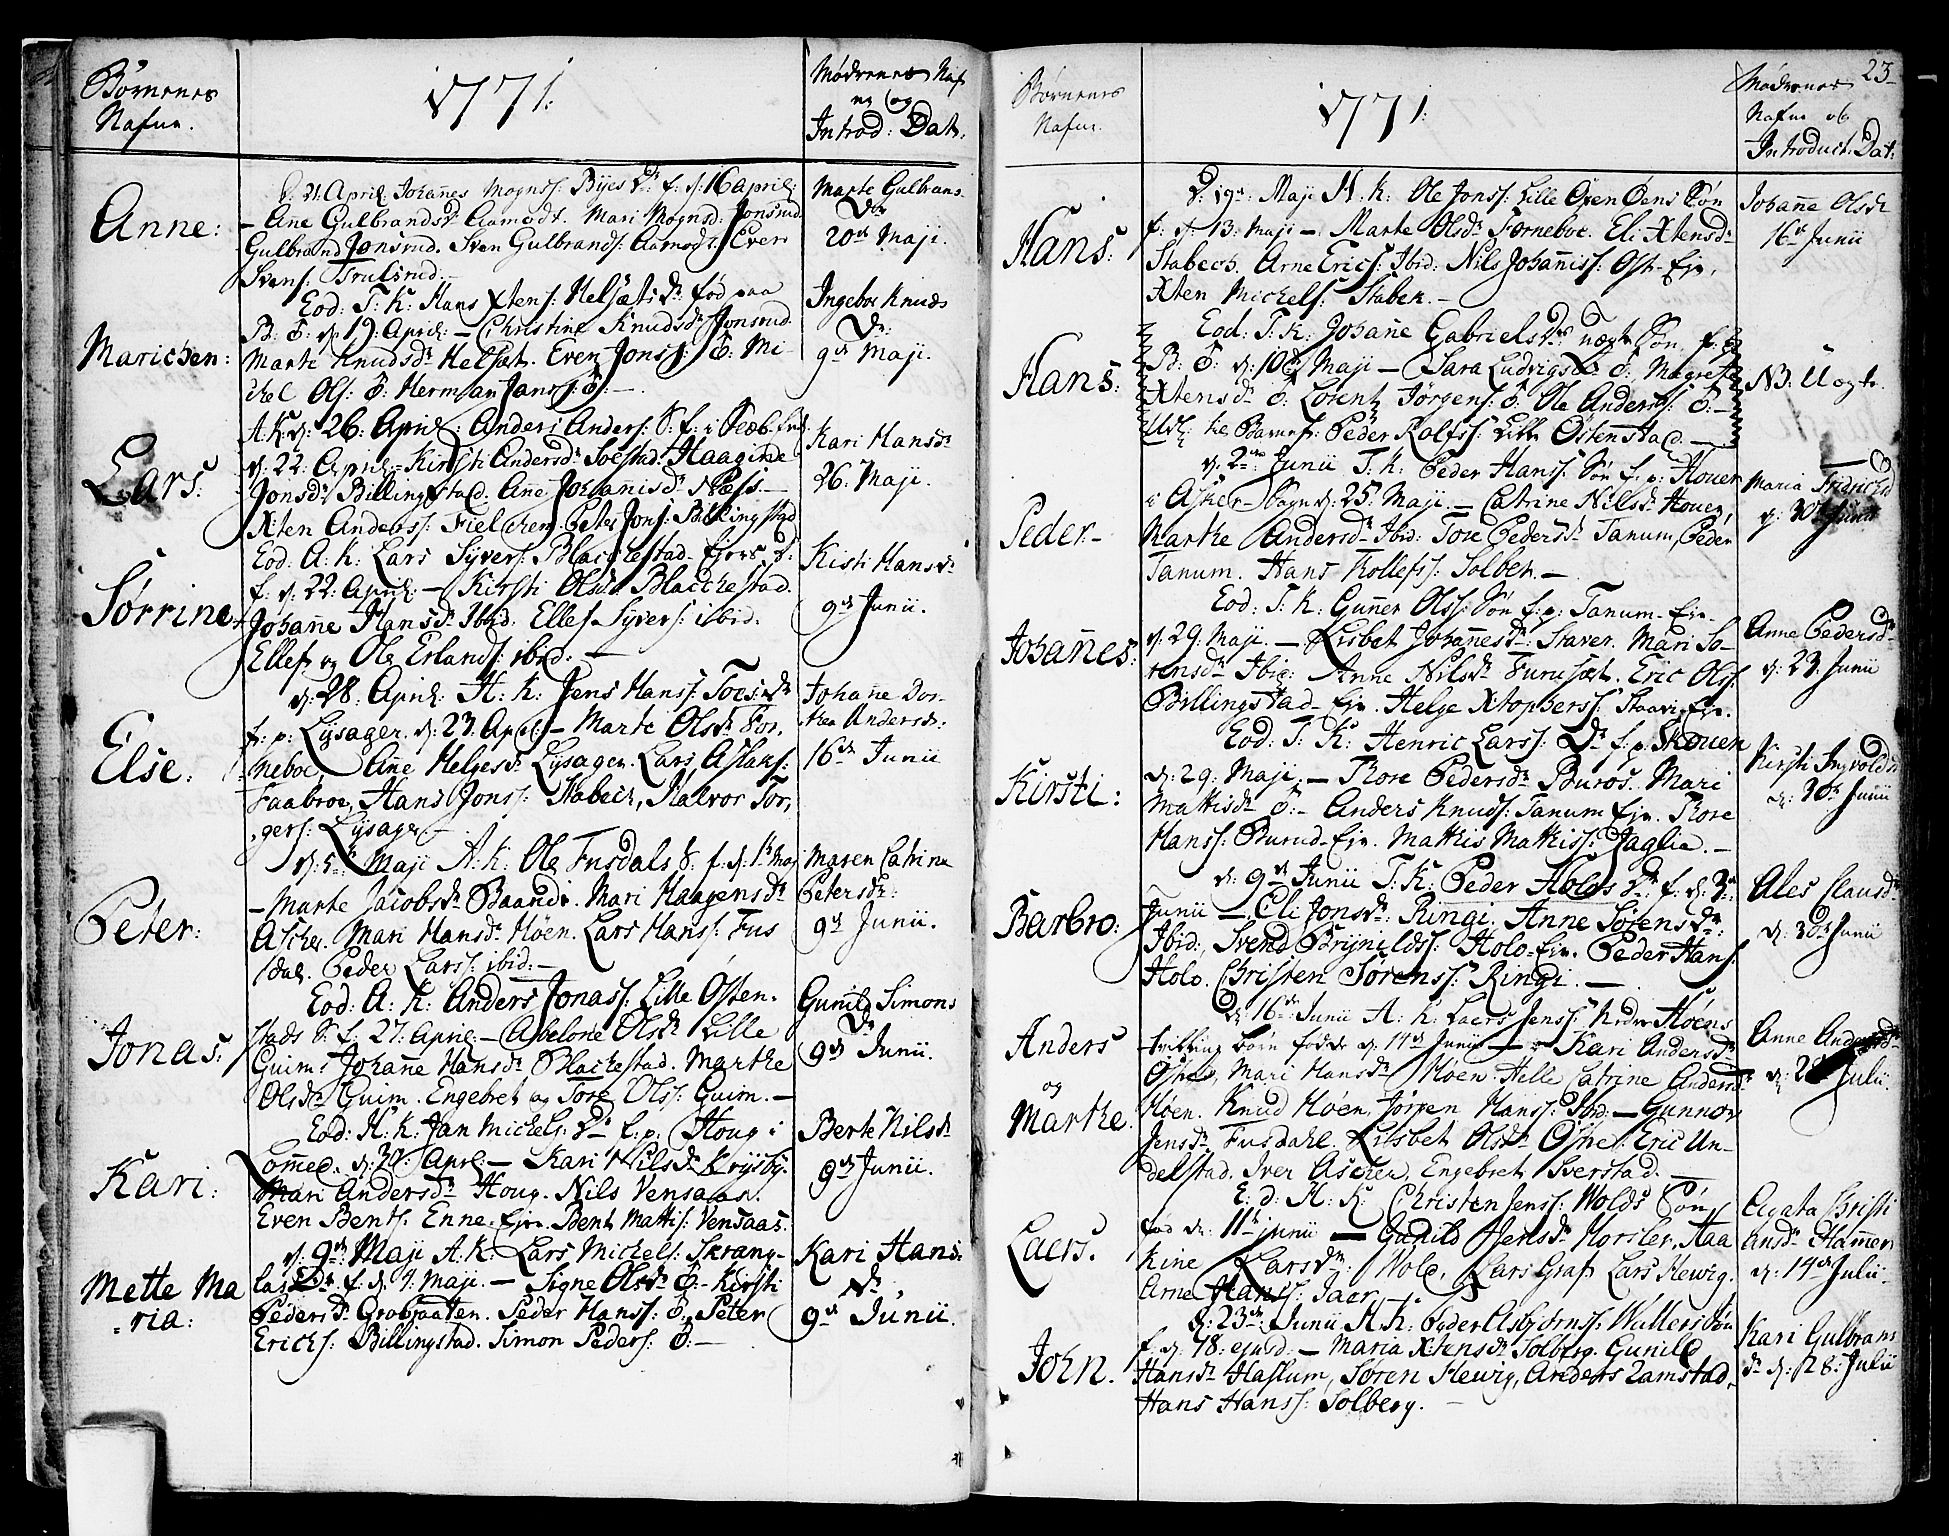 Børnenes
Nafne.
1771:
Mødrenes Naf
ne og
Introd: Dat.
Anne:
D. 21. April Johañes Mognss: Byes Dr f. d. 16 april:
– Ane Gulbrandsdr Aamodt. Mari Mognsd: Jonsrud
Gulbrand Jonsrud. Sven Gulbrands: Aamodt. Even
Svens: Trulsrud.–
Marte Gulbrans
Dr
20de Maji.
Marichen:
Eod: T. K: Hans Xtens: Helsæts Dr fød paa
B: E: d. 19. April – Christine Knudsdr Jonsrud
Marte Knudsdr Helsæt. Even Jonss: E: Mi-
chel Ols: E: Herman Janss: E: –
Ingebor Knuds
Dr:
9de Maji.
Lars:
A. K: d: 26. April: Anders Anders: S. f: i
d. 22. April – Kirsti Andersdr Soestad. Haagine
Jonsdr Billingstad. Añe Johanisdr Næss –
Xten Anderss: Fielchen. Peter Jons: Billingstad
Kari Hansdr
26. Maji.
Sørrine
Eod: A: K: Lars Syvers: Blachestad Ejers D:
f. d. 22. April. – Kirsti Olsdr Blachestad.
Johañe Hansdr Ibid. Ellef Syvers: ibid.
Ellef og Ole Erlands: ibid: –
Kisti Hansdr
9de Junii.
Else:
d. 28. April: H: K: Jens Hanss: Toes: Dr
f: p: Lysager. d: 23. April – Marte Olsdr For,
neboe, Añe Helgesdr Lysager. Lars Aslaks:
Faabroe, Hans Jonss: Stabech, Halvor Tor,
gers: Lysager –
Johañe Dor-
thea Andersdr:
16de Junii
Peter:
d. 5te Maji A: K: Ole Fusdals S: f. d. 1te Maj
– Marte Jacobsdr Baandi. Mari Haagensdr
Ascher. Mari Hansdr Høen. Lars Hanss: Fus
dal. Peder Larss: ibid: –
Maren Catrine
Petersdr:
9de Junii.
Jonas:
Eod: A: K: Anders Jonass: Lille Østen.
stads S: f. 27. April – Abelone Olsdr Lille
Guim: Johañe Hansdr Blachestad. Marthe
Olsdr Guim. Engebret og Tore Olss: Guim. –
Gunild Simons
Dr
9de Junii.
Kari:
Eod: H: K: Jan Michels: Dr f: p: Houg i
Lommed. d: 30: April – Kari Nilsdr Krysby.
Mari Andersdr Houg. Nils Vensaas.
Even Bents: Enne. Eje. Bent Mattis: Vensaas.
Berte Nilsdr
9de Junii.
Mette Ma
ria:
d. 9de Maji A. K: Lars Michels: Skrang-
las Dr f: d. 4. Maji. – Signe Olsdr E: – Kirsti
Pedersdr Grobraaten. Peder Hanss: E: Peter
Ericks: Billingstad. Simon Peders: E: –
Kari Hans:
Dr
9de Junii.
23
Børnenes
Nafne.
1771:
Mødrenes
Nafne og
Introduct: Dat:
Hans:
D: 19de Maji H. K: Ole Jonss: Lille Oxen Øens Søn
f: d. 13. Maji – Marte Olsdr Forneboe. Eli Xtensdr
Stabech. Arne Erics: Ibid: Nils Johañiss: Ost- Eje.
Xten Michels: Staben. –
Johañe Olsdr
16de Junii
Hans:
Eod: T. K: Johañe Gabriels Drs uægte Søn. f: p
B: E: d. 10de Maji – Sara Ludvigsdr E: Magrete
Xtensdr E: Lorentz Jørgens: E: Ole Anderss: E: –
Udl: til Barnef: Peder Rolfss: Lille Østenstad. –
NB. Uægte.
Peder –
d. 2den Junii T. K: Peder Hanss: Søn f. p: Houer
i Asker Sogn d. 25. Maji – Catrine Nilsdr Houer,
Marthe Andersdr Ibid: Tore Pedersdr Tanum, Peder
Tanum. Hans Rollefs: Solber. –
Maria Fridrichsd
d. 30te Junii
Johañes:
Eod: T. K: Guñer Olss: Søn f: p: Tanum Eje.
d. 29. Maji. – Lisbet Johañesdr: Staver. Mari So-
rensdr Ibid: Anne Nilsdr Furuset. Eric Olss:
Billingstad Eje. Helge Xtophers: Staver Eje.
Anne Pedersdr
d. 23. Junii
Kirsti:
Eod: T. K: Henric Larss: Dr f. p. Skouen
d. 29. Maji. – Thore Pedersdr Buros. Mari
Mattisdr E: – Anders Knuds: Tanum Eje. Thore
Hanss: Burud Eje. Mathis Mathiss: Jaglie. –
Kirsti Ingvoldsd
d: 30te Junii
Barbro:
d. 9de Junii T. K: Peder Holos Dr f. d. 3de
Junii – Eli Jonsdr: Ringi. Anne Sørensdr:
Ibid: Svend Brynilds: Holo Eje. Peder Hans:
Holo. Christen Sørenss: Ringi. –
Ales Clausdr
d. 30te Junii
Anders
og
Marthe.
d. 16de Junii A. K. Laers Jenss: Nedre Høens
tvilling børn fødde d. 14de Junii – Kari Andersdr
Ophet, Mari Hansdr Høen. Helle Catrine Andersdr
Høen. Knud Høen, Jørgen Hanss: Ibid: – Gunnor
Jensdr Fusdahl. Lisbet Olsdr Ophet. Eric Un-
delstad. Iver Ascher, Engebret Sverstad. –
Anne Andersdr
d: 28de Julii
Laers.
E. d: H: K: Christen Jenss: Wolds Søn
fød d. 11te junii – Gunild Jensdr Horsler, Aa
kine Larsdr: Wold, Lars Graf Lars Hewig.
Arne Hanss: Jaar.
Agata Christi
ansdr Hammer
d: 14de Julii.
John.
D: 23de: Junii H: K: Peder Asbjørns: Wullers Søn
f: d. 18: ejusd: – Maria Xtensdr Solberg. Gunild
Hansdr Haslum, Søren Hewig, Anders Ramstad,
Hans Hanss: Solberg. –
Kari Gulbrans
dr d: 28: Julii